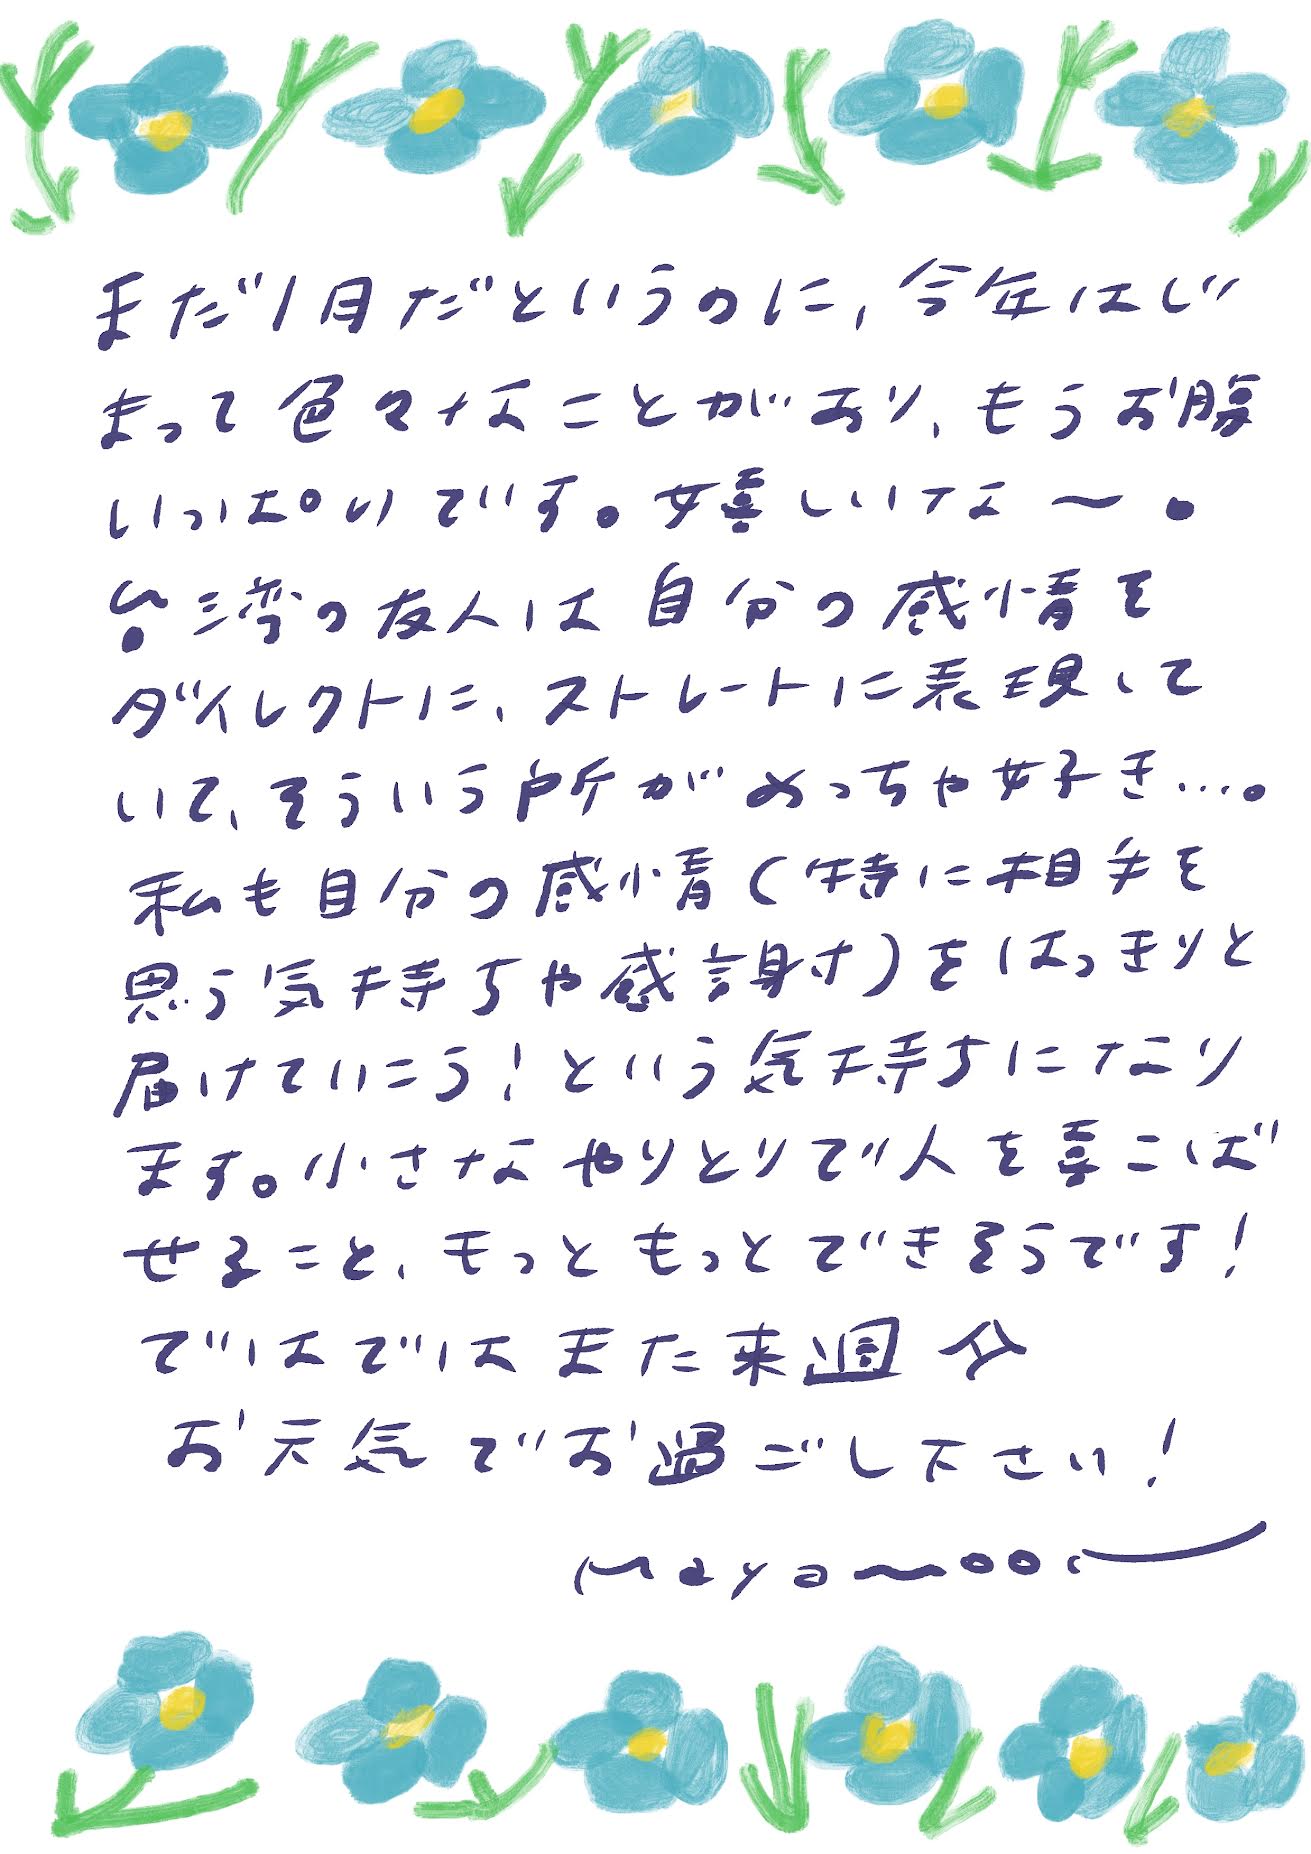 まだ1月だというのに、今年はじ
まって色々なことがあり、もうお腹
いっぱいです。嬉しいな〜。
台湾の友人は自分の感情を
ダイレクトに、ストレートに表現して
いて、そういう所がめっちゃ好き…。
私も自分の感情(特に相手を
思う気持ちや感謝)をはっきりと
届けていこう!という気持ちになり
ます。小さなやりとりで人を喜こば
せること、もっともっとできそうです!
ではではまた来週☆
お天気でお過ごし下さい!